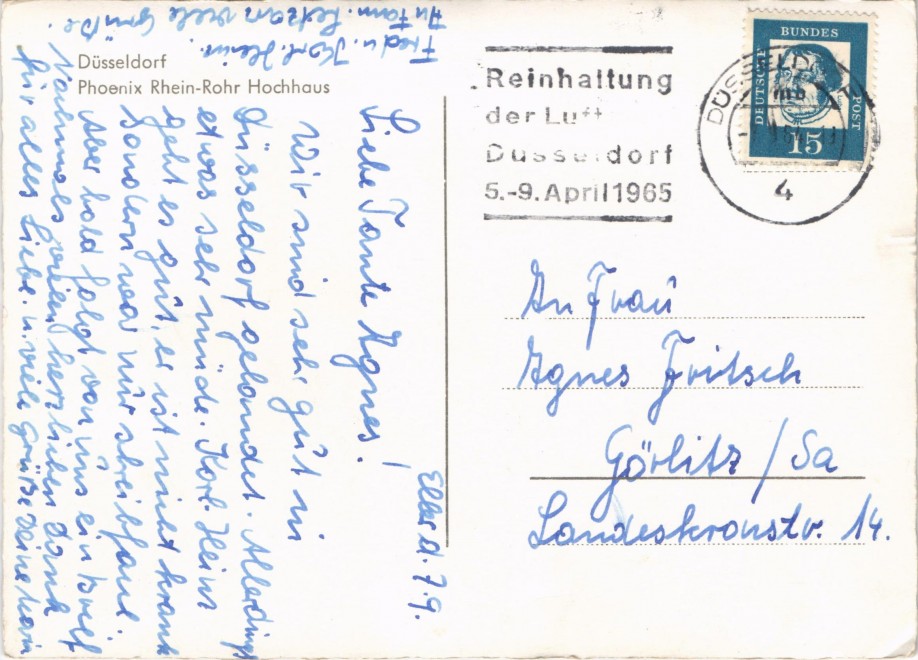 Düsseldorf
Phoenix Rhein-Rohr Hochhaus
Eller d. 7.9.
Liebe Tante Agnes!
Wir sind sehr gut in
Düsseldorf gelandet. Allerdings
etwas sehr müde. Karl-Heinz
geht es gut, er ist nicht krank
sondern war nur schreibfaul.
Aber bald folgt von uns ein Brief
Nochmals vielen herzlichen Dank
für alles Liebe. u. viele Grüße Deine
Fred u. Karl-Heinz.
An Fam. viele Grüße.
Reinhaltung
der Luft
Düsseldorf
5.-9. April 1965
DÜSSELDORF
4
DEUTSCHE
BUNDES
POST
15
An Frau
Agnes Fritsch
Görlitz / Sa
Landeskronstr. 14.